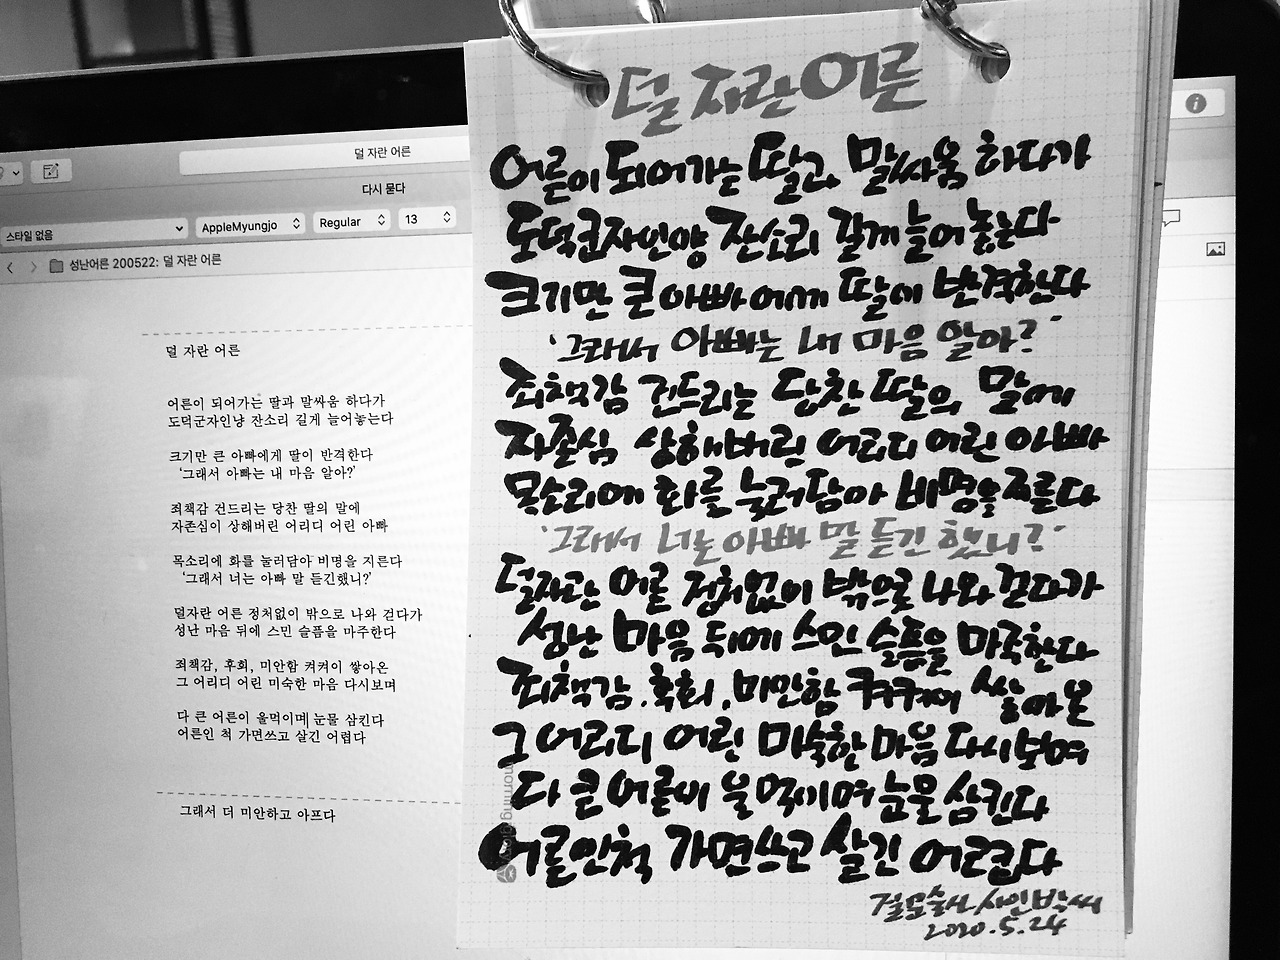 덜 자란 어른
다시 묻다
스타일 없음
AppleMyungjo
Regular
13
성난어른 200522: 덜 자란 어른
덜 자란 어른
어른이 되어가는 딸과 말싸움 하다가
도덕군자인냥 잔소리 길게 늘어놓는다
크기만 큰 아빠에게 딸이 반격한다
'그래서 아빠는 내 마음 알아?'
죄책감 건드리는 당찬 딸의 말에
자존심이 상해버린 어리디 어린 아빠
목소리에 화를 눌러담아 비명을 지른다
'그래서 너는 아빠 말 듣긴했니?'
덜자란 어른 정처없이 밖으로 나와 걷다가
성난 마음 뒤에 스민 슬픔을 마주한다
죄책감, 후회, 미안함 켜켜이 쌓아온
그 어리디 어린 미숙한 마음 다시보며
다 큰 어른이 울먹이며 눈물 삼킨다
어른인 척 가면쓰고 살긴 어렵다
그래서 더 미안하고 아프다
덜 자란 어른
어른이 되어가는 딸과 말싸움 하다가
도덕군자인양 잔소리 길게 늘어놓는다
크기만 큰 아빠에게 딸이 반격한다
'그래서 아빠는 내 마음 알아?'
죄책감 건드리는 당찬 딸의 말에
자존심 상해버린 어리디 어린 아빠
목소리에 화를 눌러담아 비명을 지른다
'그래서 너는 아빠 말 듣긴 했니?'
덜자란 어른 정처없이 밖으로 나와 걷다가
성난 마음 뒤에 스민 슬픔을 마주한다
죄책감, 후회, 미안함 켜켜이 쌓아온
그 어리디 어린 미숙한 마음 다시보며
다 큰 어른이 울먹이며 눈물 삼킨다
어른인척 가면쓰고 살긴 어렵다
걸음술사/시인박씨
2020.5.24
morning glory